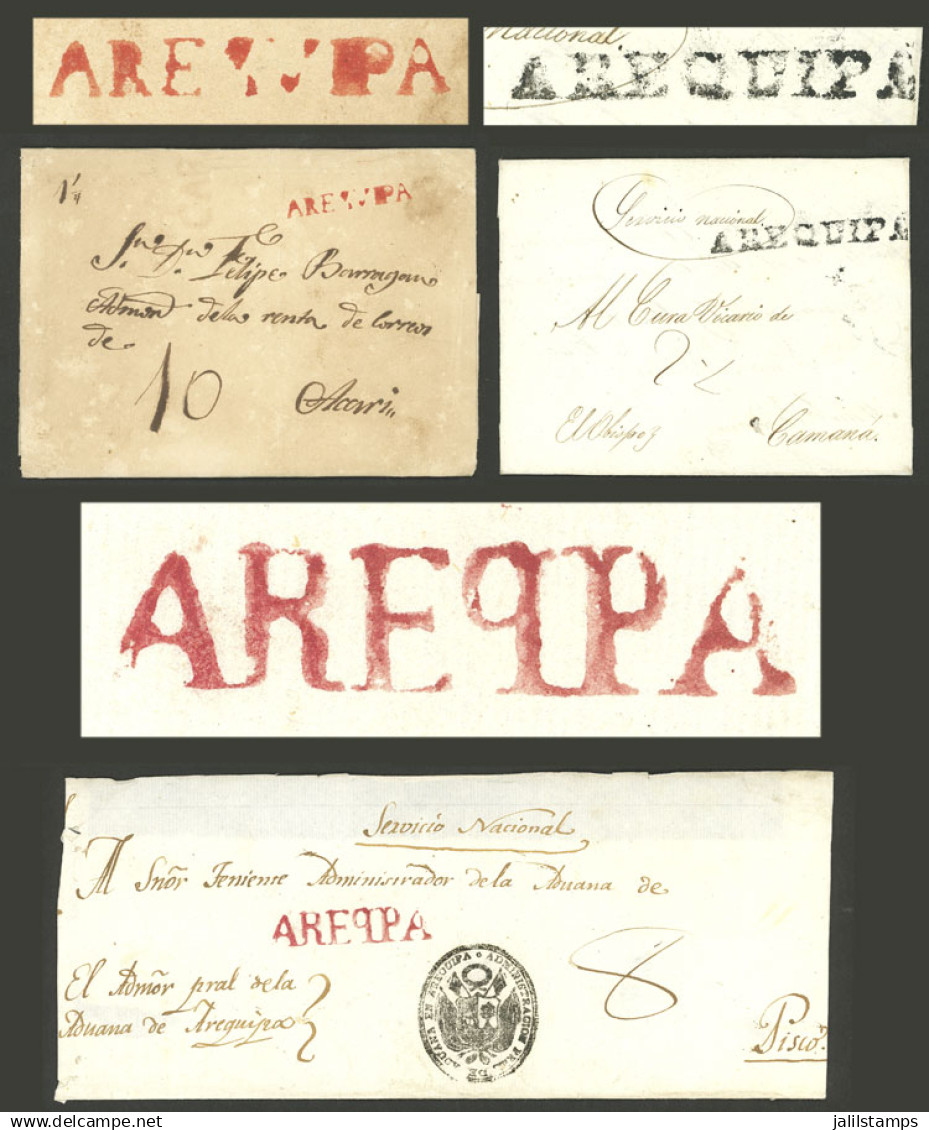 AREꟼVIPA
nacional
AREQUIPA
1/4
AREꟼVIPA
Sor. Dn. Felipe Barragan
Admor. de la renta de Correos
de
10
Acari
Servicio nacional
AREQUIPA
Al Cura Vicario de
El Obispo
Camaná.
AREꟼIPA
Servicio Nacional
Al Sñor Teniente Administrador de la Aduana de
AREꟼIPA
El Admõr pral de la
Aduana de Arequipa
8
ADUANA EN AREQUIPA
ADMINISTRACION PRAL DE
Pisco.
jalilstamps